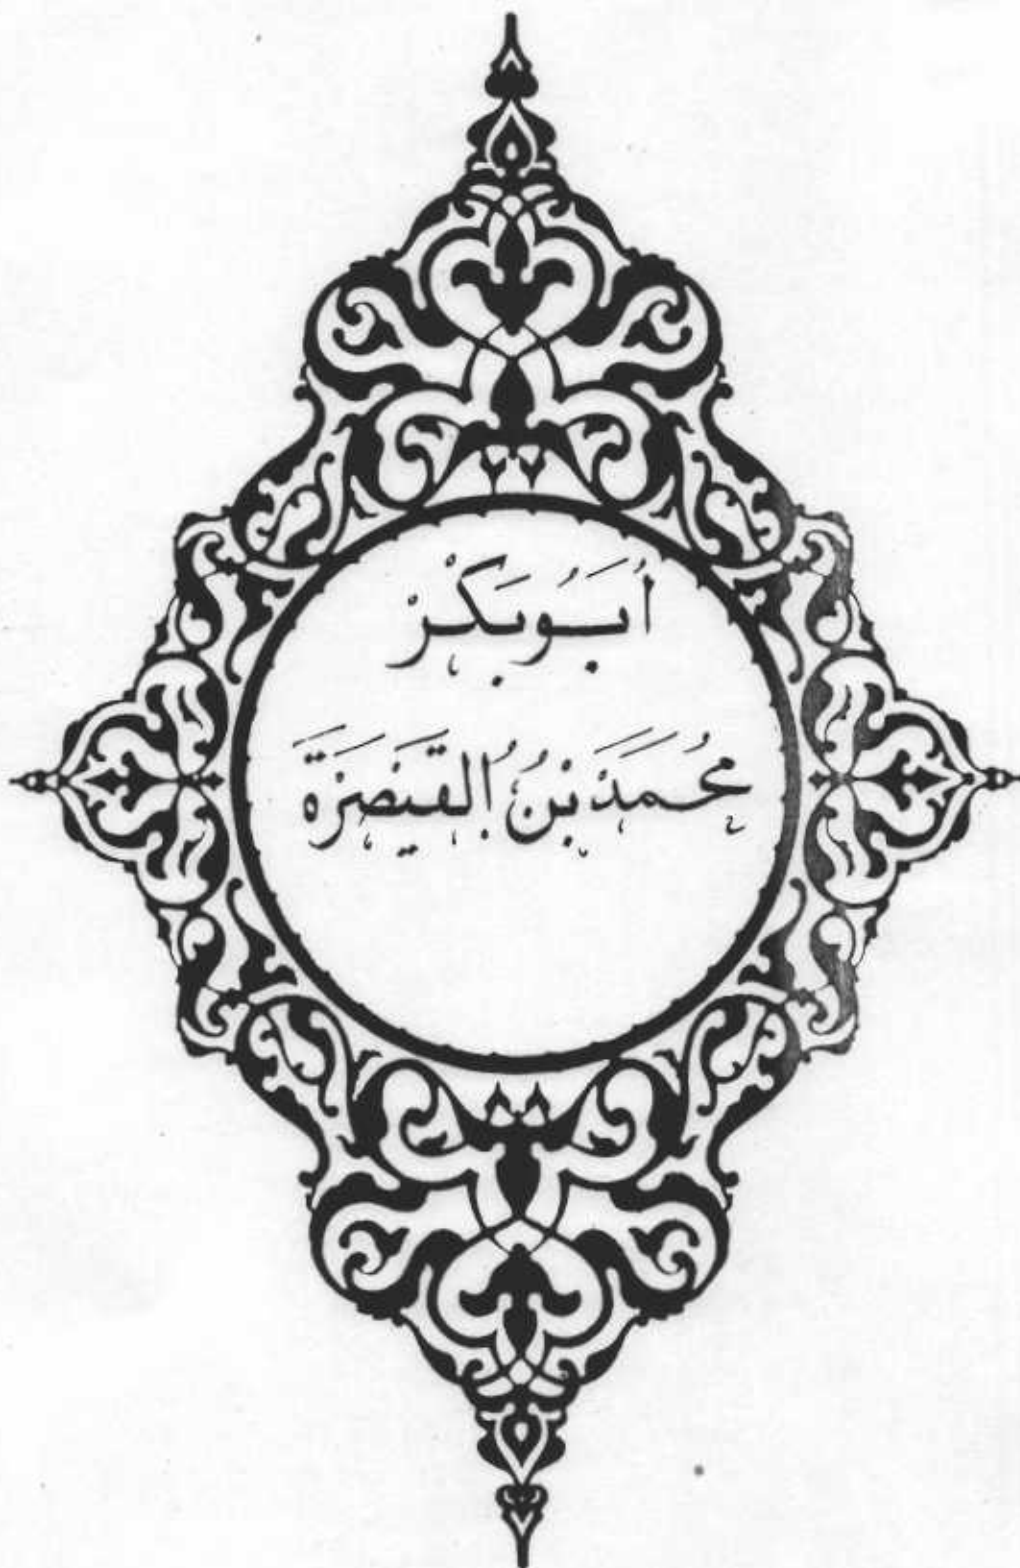 أَبُو بَكْرْ
مُحَمَّد بْنُ القَصِيرَة